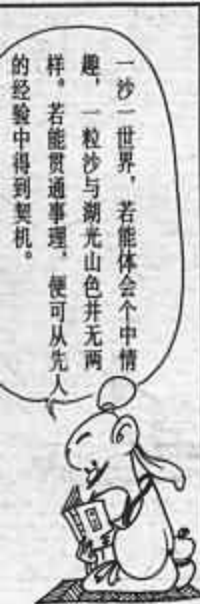 一沙一世界，若能体会个中情
趣，一粒沙与湖光山色并无两
样。若能贯通事理，便可从先人
的经验中得到契机。